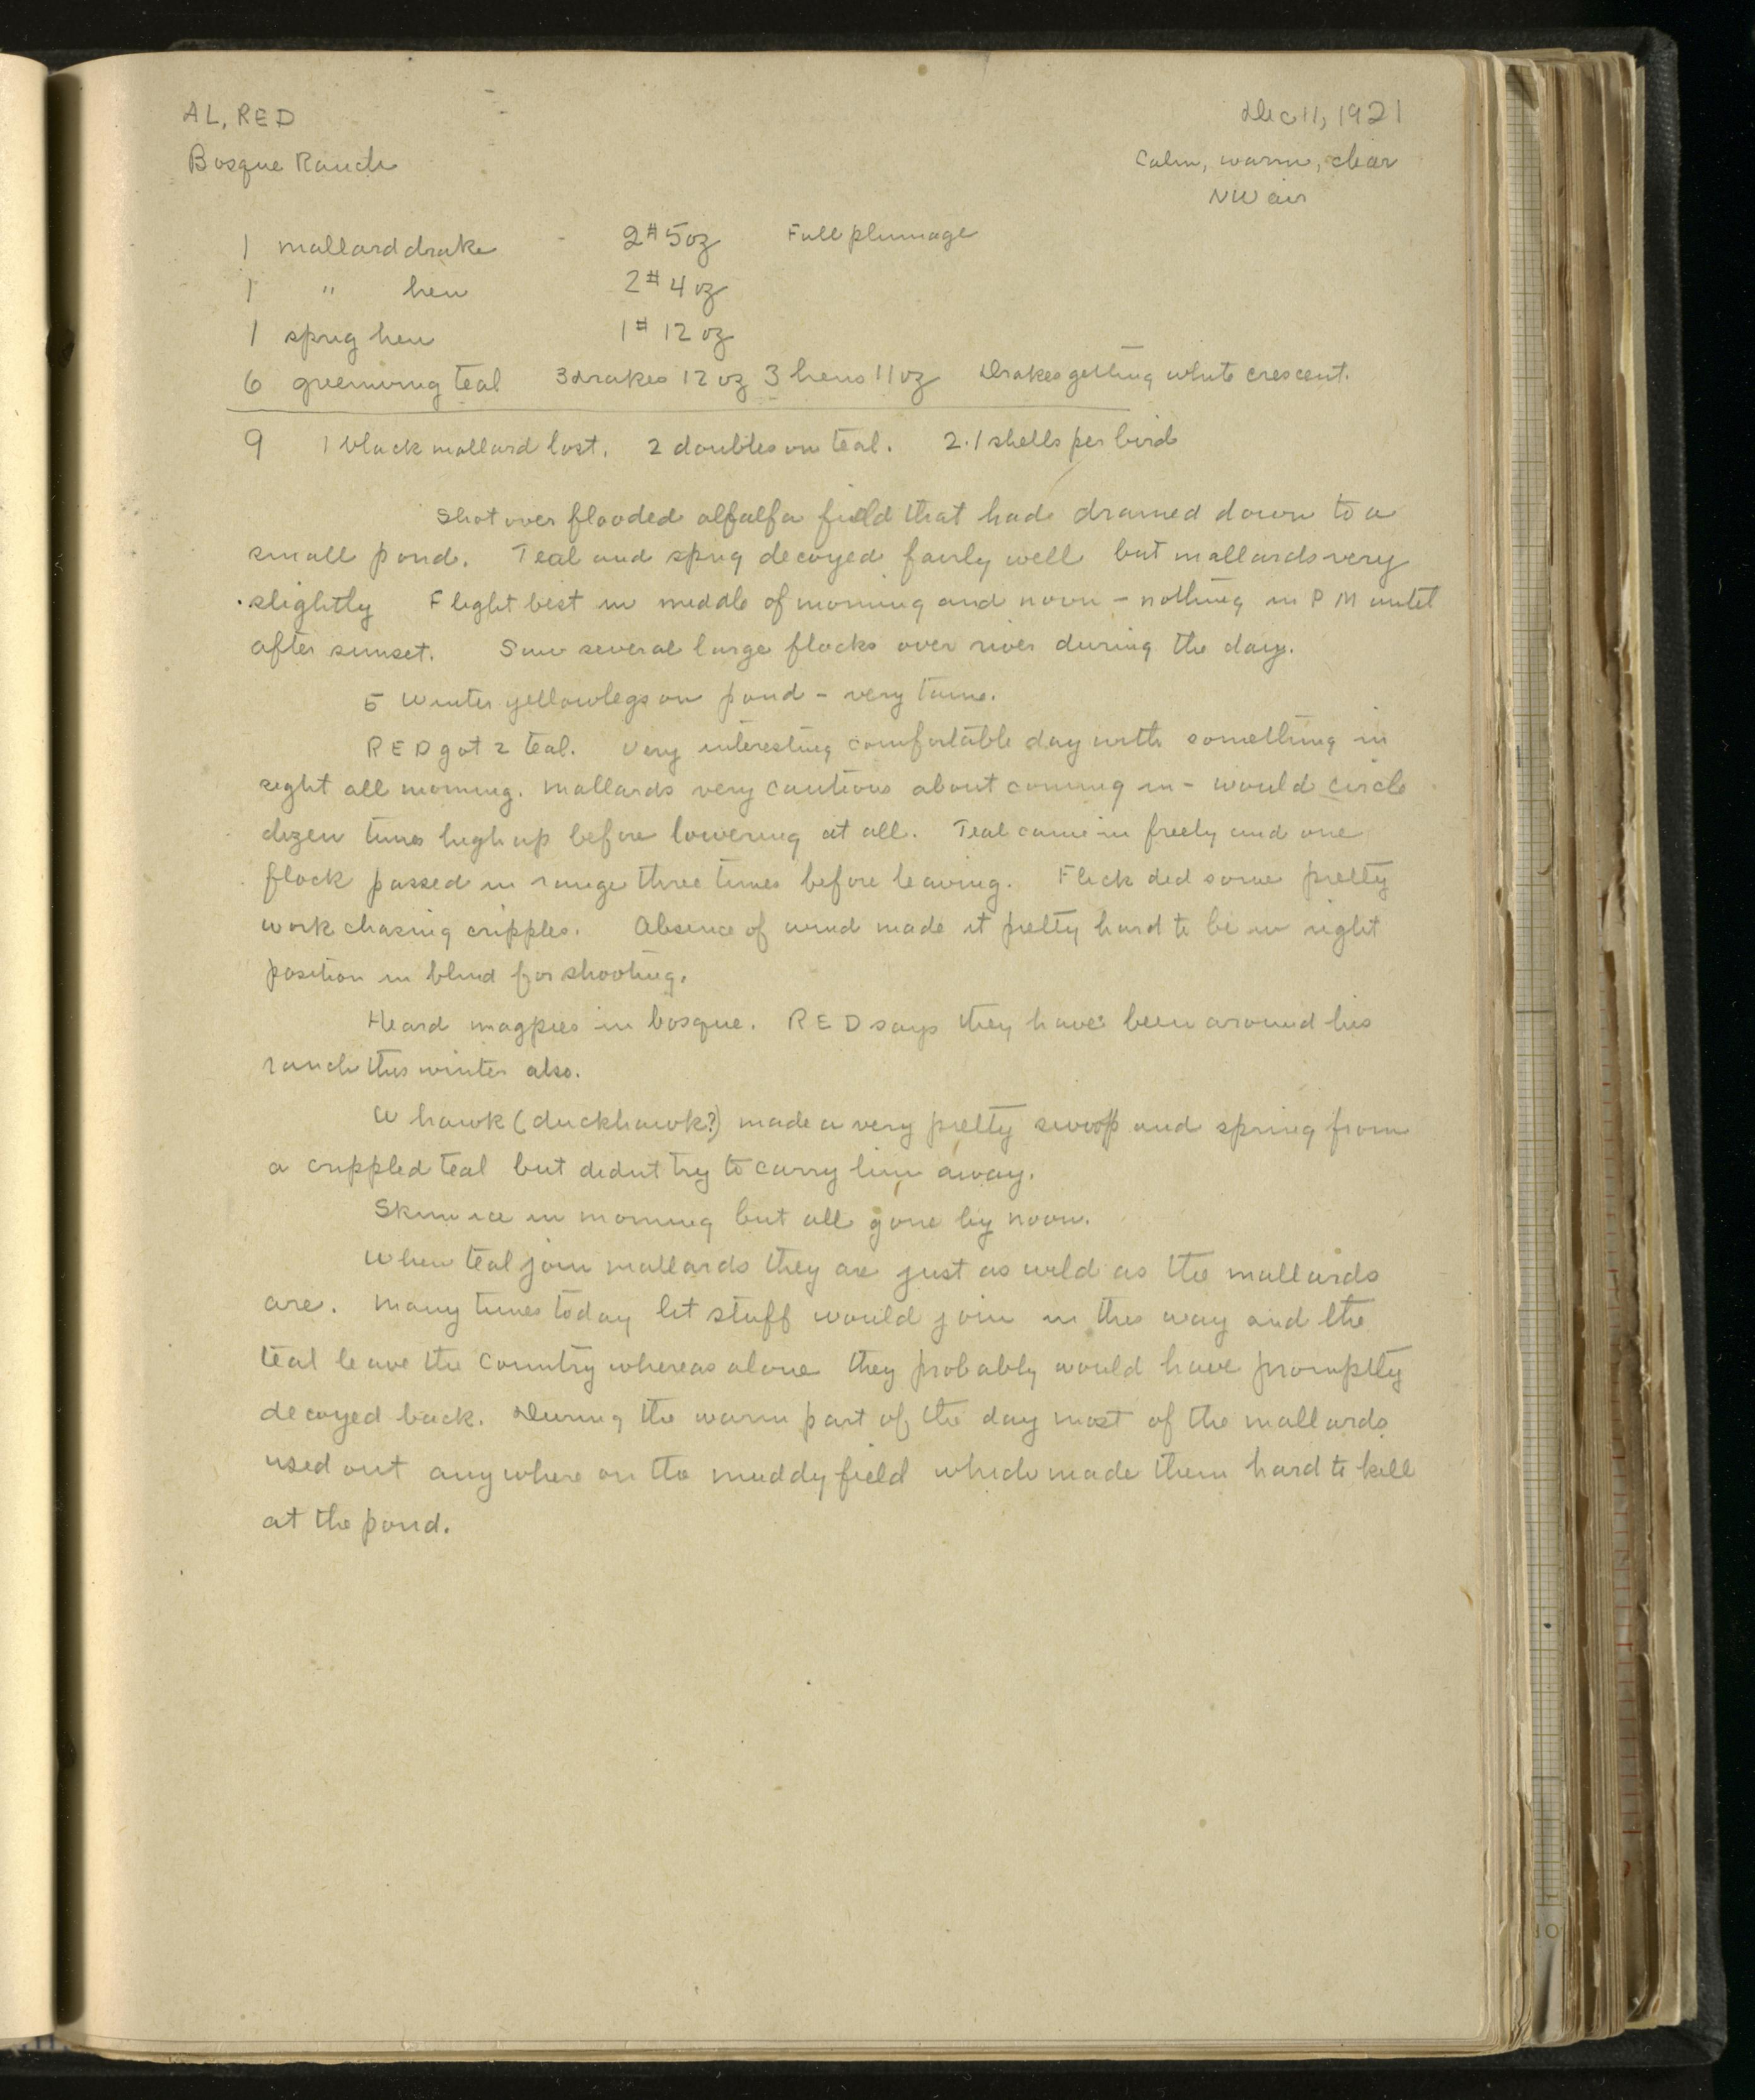 AL, RED
Dec 11, 1921
Bosque Ranch
Calm, warm, clear
NW air
1 mallard drake - 2# 5oz Full plumage
1 " hen 2# 4 oz
1 sprig hen 1# 12 oz
6 greenwing teal 3 drakes 12 oz 3 hens 11 oz Drakes getting white crescent.
9 1 black mallard lost. 2 doubles on teal. 2.1 shells per bird
Shot over flooded alfalfa field that had drained down to a
small pond. Teal and sprig decoyed fairly well but mallards very
slightly Flight best in middle of morning and noon - nothing in PM until
after sunset. Saw several large flocks over river during the day.
5 Winter yellowlegs on pond - very tame.
RED got 2 teal. Very interesting comfortable day with something in
sight all morning. Mallards very cautious about coming in - would circle
dozen times high up before lowering at all. Teal came in freely and one
flock passed in range three times before leaving. Flick did some pretty
work chasing cripples. Absence of wind made it pretty hard to be in right
position in blind for shooting.
Heard magpies in bosque. RED says they have been around his
ranch this winter also.
A hawk (duckhawk?) made a very pretty swoop and spring from
a crippled teal but didnt try to carry him away.
Skim ice in morning but all gone by noon.
When teal join mallards they are just as wild as the mallards
are. Many times today lit stuff would join in this way and the
teal leave the country whereas alone they probably would have promptly
decoyed back. During the warm part of the day most of the mallards
used out anywhere on the muddy field which made them hard to kill
at the pond.
10